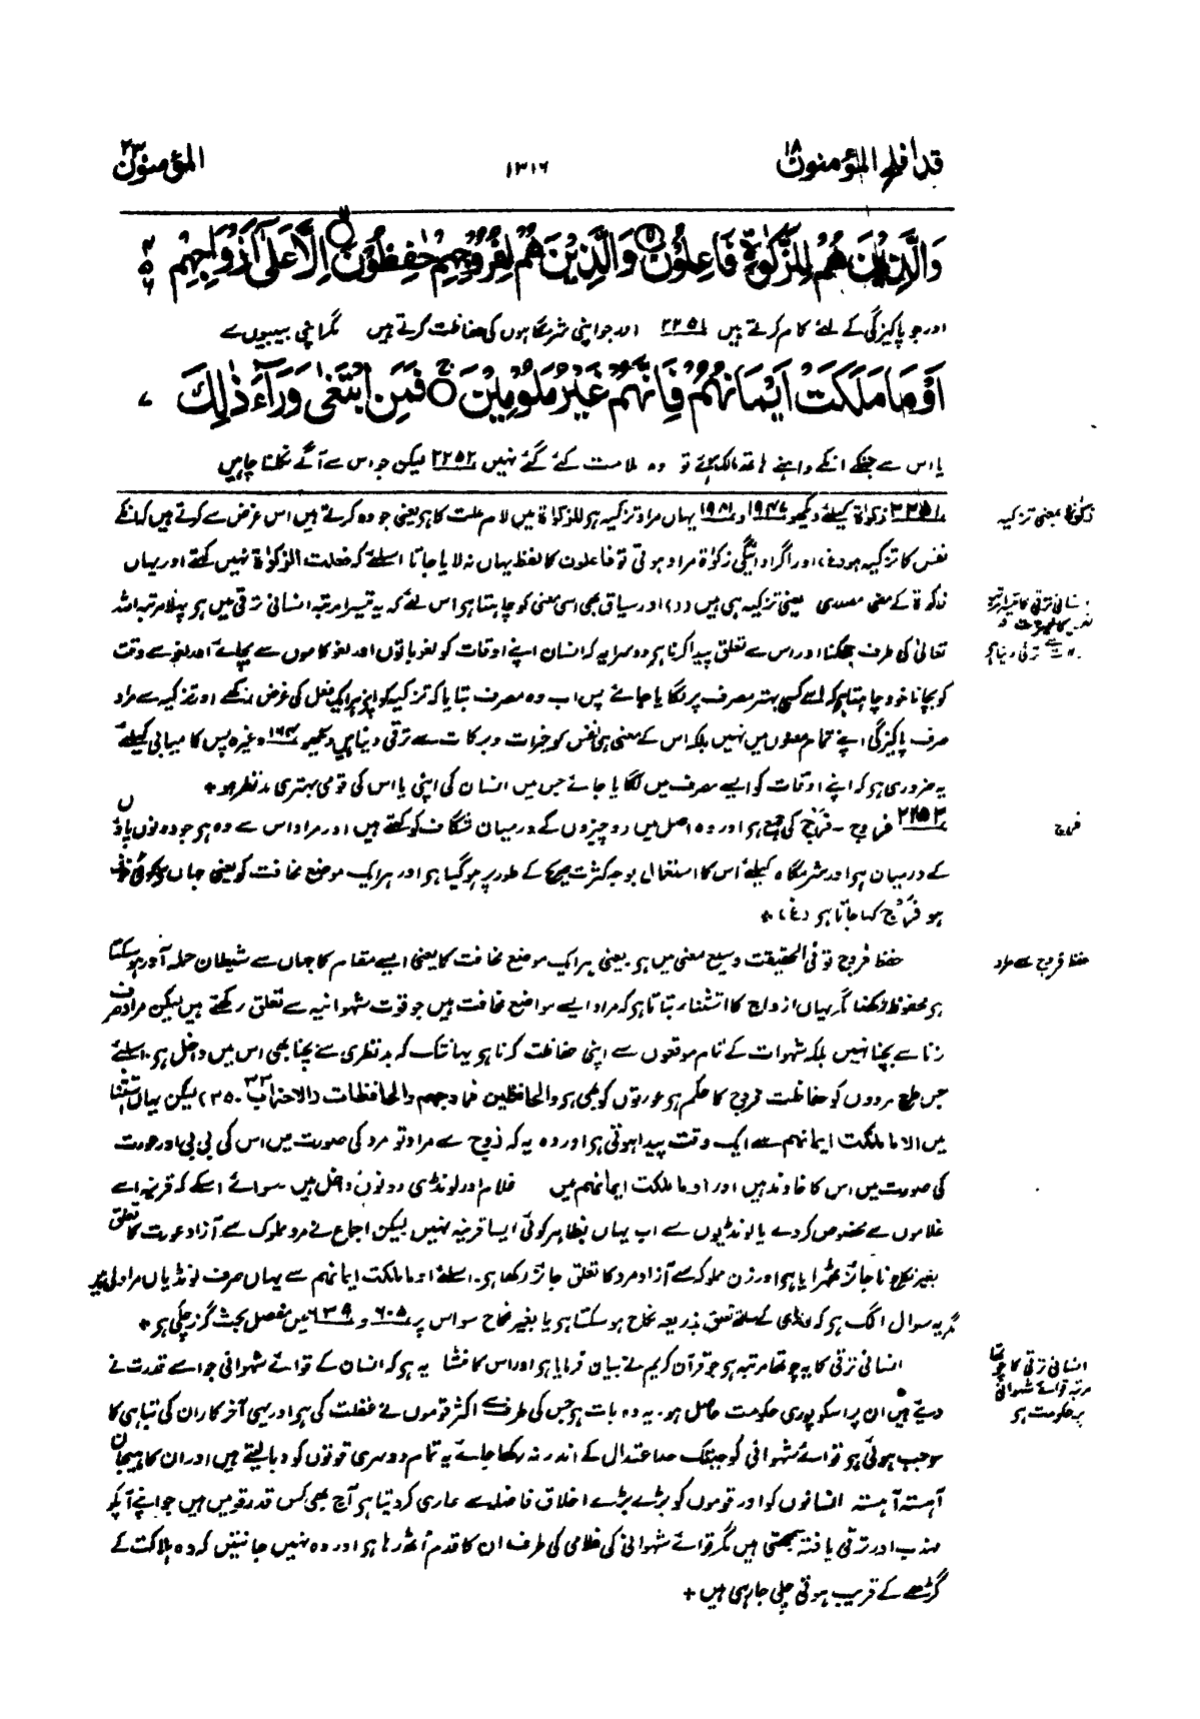 قد افلح المؤمنون ۱۸
۱۳۱۶
المؤمنون ۲۳
وَالَّذِيْنَ هُمْ لِلزَّكٰوةِ فَاعِلُوْنَ وَالَّذِيْنَ هُمْ لِفُرُوْجِهِمْ حٰفِظُوْنَ اِلَّا عَلٰى اَزْوَاجِهِمْ
اور جو پاکیزگی کے لئے کام کرتے ہیں ۲۲۵۱ اور جو اپنی شرمگاہوں کی حفاظت کرتے ہیں مگر اپنی بیبیوں سے
اَوْ مَا مَلَكَتْ اَيْمَانُهُمْ فَاِنَّهُمْ غَيْرُ مَلُوْمِيْنَ فَمَنِ ابْتَغٰى وَرَآءَ ذٰلِكَ ۷
یا اس سے جسکے انکے داہنے ہاتھ مالک ہوئے تو وہ ملامت کئے گئے نہیں ۲۲۵۲ لیکن جو اس سے آگے نکلنا چاہیں
زکوٰۃ بمعنی تزکیہ
۲۲۵۱ زکوٰۃ کیلئے دیکھو ۱۹۴۷ و ۱۹۸۱ یہاں مراد تزکیہ ہو للزکوٰۃ میں لام علت کا ہو یعنی جو وہ کرتے ہیں اس غرض سے کرتے ہیں کہ انکے
نفس کا تزکیہ ہو (غ) اور اگر ادائیگی زکوٰۃ مراد ہوتی تو فاعلون کا لفظ یہاں نہ لایا جاتا اسلئے کہ فعلت الزکوٰۃ نہیں کہتے اور یہاں
زکوٰۃ کے معنی مصدری یعنی تزکیہ ہی ہیں (ر) اور سیاق بھی اسی معنی کو چاہتا ہو اس لئے کہ یہ تیسرا مرتبہ انسانی ترقی میں ہو پہلا مرتبہ اللہ
تعالیٰ کی طرف جھکنا اور اس سے تعلق پیدا کرنا ہو دوسرا یہ کہ انسان اپنے اوقات کو لغو باتوں اور لغو کاموں سے بچائے اور لغو سے وقت
کو بچانا خود چاہتا ہو کہ اسے کسی بہتر مصرف پر لگایا جائے پس اب وہ مصرف بتایا کہ تزکیہ کو اپنے ہر ایک فعل کی غرض رکھے اور تزکیہ سے مراد
صرف پاکیزگی اپنے تمام معنوں میں نہیں بلکہ اس کے معنی ہی نفس کو خیرات و برکات سے ترقی دینا ہیں دیکھو وغیرہ پس کامیابی کیلئے
یہ ضروری ہو کہ اپنے اوقات کو ایسے مصرف میں لگایا جائے جس میں انسان کی اپنی یا اس کی قومی بہتری مدنظر ہو +
فرج
۲۲۵۲ فروج - فَرْج کی جمع ہو اور وہ اصل میں دو چیزوں کے درمیان شگاف کو کہتے ہیں اور مراد اس سے وہ ہو جو دونوں پاؤں
کے درمیان ہو اور شرمگاہ کیلئے اس کا استعمال بوجہ کثرت کے طور پر ہو گیا ہو اور ہر ایک موضع مخافت کو یعنی جہاں کوئی خوف
ہو فَرْج کہا جاتا ہو (غ) +
حفظ فروج سے مراد
حفظ فروج تو فی الحقیقت وسیع معنی میں ہو۔ یعنی ہر ایک موضع مخافت کا یعنی ایسے مقام کا جہاں سے شیطان حملہ آور ہو سکتا
ہو محفوظ رکھنا مگر یہاں ازواج کا استثناء بتاتا ہو کہ مراد ایسے مواضع مخافت ہیں جو قوت شہوانیہ سے تعلق رکھتے ہیں لیکن مراد صرف
زنا سے بچنا نہیں بلکہ شہوات کے تمام موقعوں سے اپنی حفاظت کرنا ہو یہاں تک کہ بدنظری سے بچنا بھی اس میں داخل ہو۔ اسلئے
جس طرح مردوں کو حفاظت فروج کا حکم ہو عورتوں کو بھی ہو والحافظین فروجہم والحافظات (الاحزاب ۳۳-۳۵) لیکن یہاں استثنا
میں الا ما ملکت ایمانہم سے ایک دقت پیدا ہوتی ہو اور وہ یہ کہ زوج سے مراد تو مرد کی صورت میں اس کی بی بی اور عورت
کی صورت میں اس کا خاوند ہیں اور او ما ملکت ایمانہم میں غلام اور لونڈی دونوں داخل ہیں سوائے اسکے کہ قرینہ اسے
غلاموں سے مخصوص کر دے یا لونڈیوں سے اب یہاں بظاہر کوئی ایسا قرینہ نہیں لیکن اجماع نے مرد مملوک سے آزاد عورت کا تعلق
بغیر نکاح ناجائز ٹھرایا ہو اور زن مملوکہ سے آزاد مرد کا تعلق جائز رکھا ہو۔ اسلئے او ما ملکت ایمانہم سے یہاں صرف لونڈیاں مراد لی ہیں
مگر یہ سوال الگ ہو کہ لونڈی کے ساتھ تعلق بذریعہ نکاح ہو سکتا ہو یا بغیر نکاح سو اس پر ۶۰۵ و ۶۳۹ میں مفصل بحث گزر چکی ہو +
انسانی ترقی کا چوتھا
مرتبہ قوائے شہوانی
پر حکومت ہو
انسانی ترقی کا یہ چوتھا مرتبہ ہو جو قرآن کریم نے بیان فرمایا ہو اور اس کا منشا یہ ہو کہ انسان کے قوائے شہوانی جو اسے قدرت نے
دیئے ہیں ان پر اسکو پوری حکومت حاصل ہو۔ یہ وہ بات ہو جس کی طرف سے اکثر قوموں نے غفلت کی ہو اور یہی آخر کار ان کی تباہی کا
موجب ہوئی ہو قوائے شہوانی کو جبتک حد اعتدال کے اندر نہ رکھا جائے یہ تمام دوسری قوتوں کو دبا لیتے ہیں اور ان کا ہیجان
آہستہ آہستہ انسانوں کو اور قوموں کو بڑے بڑے اخلاق فاضلہ سے عاری کر دیتا ہو آج بھی کس قدر قومیں ہیں جو اپنے آپکو
مہذب اور ترقی یافتہ سمجھتی ہیں مگر قوائے شہوانی کی غلامی کی طرف ان کا قدم اٹھ رہا ہو اور وہ نہیں جانتیں کہ وہ ہلاکت کے
گڑھے کے قریب ہوتی چلی جا رہی ہیں +